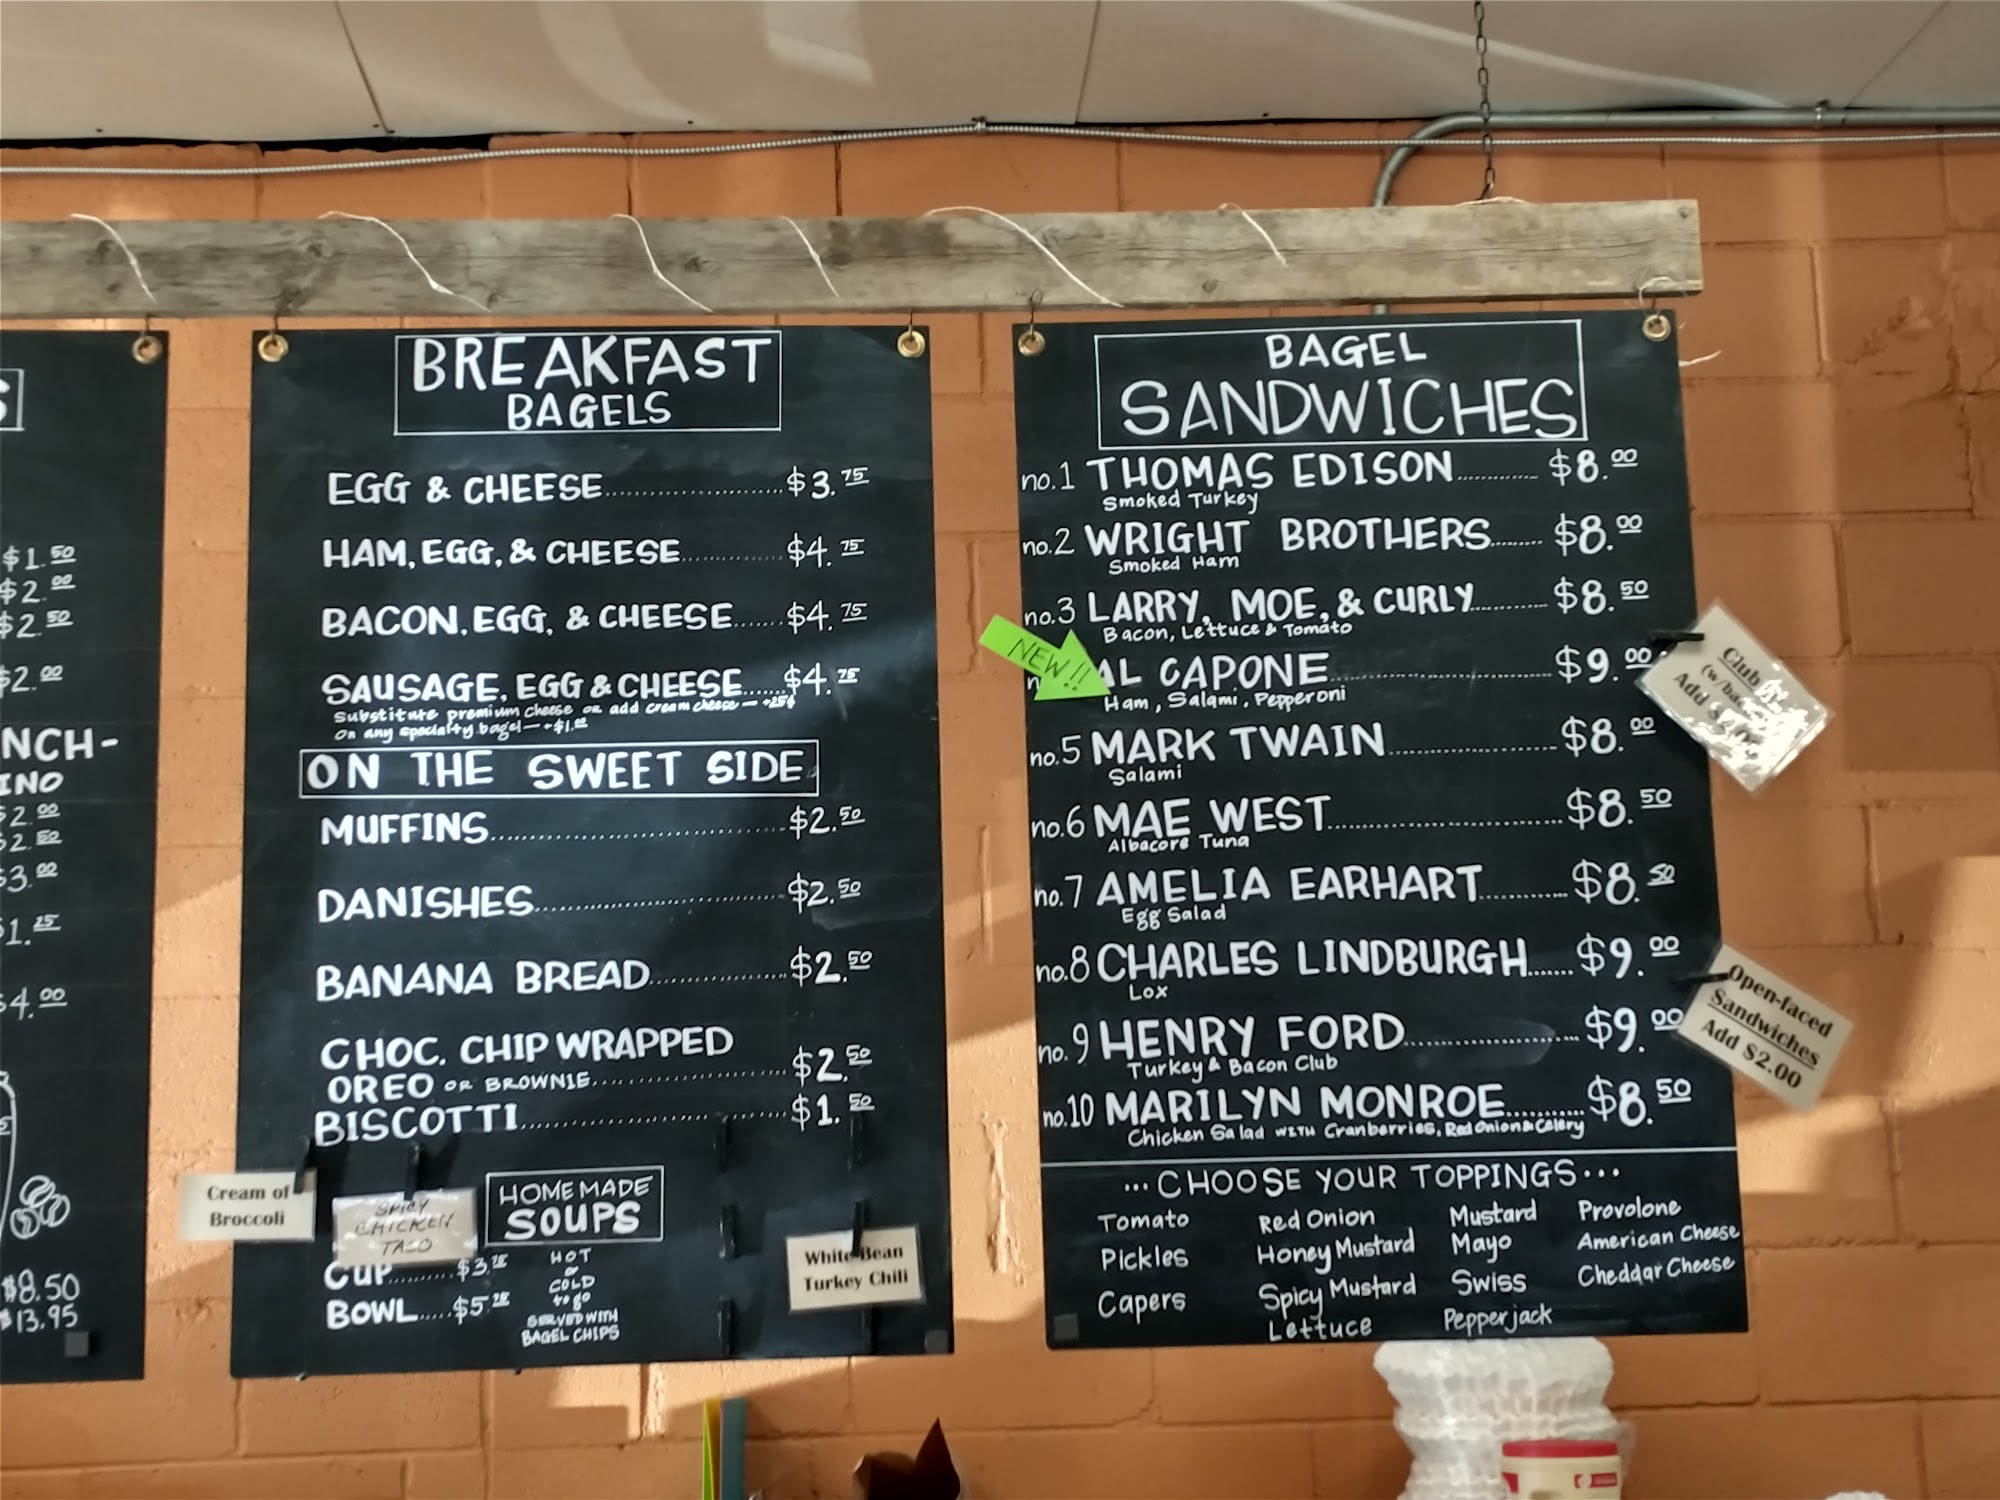 $1.50
$2.00
$2.50
$2.00
NCH-
INO
$2.00
$2.50
$3.00
$1.25
$4.00
$8.50
$13.95
BREAKFAST
BAGELS
EGG & CHEESE $3.75
HAM, EGG, & CHEESE $4.75
BACON, EGG, & CHEESE $4.75
SAUSAGE, EGG & CHEESE $4.75
Substitute premium cheese or add cream cheese — +25¢
On any specialty bagel — +$1.00
ON THE SWEET SIDE
MUFFINS $2.50
DANISHES $2.50
BANANA BREAD $2.50
CHOC. CHIP WRAPPED
OREO OR BROWNIE $2.50
BISCOTTI $1.50
Cream of
Broccoli
SPICY
CHICKEN
TACO
HOMEMADE
SOUPS
CUP $3.75
BOWL $5.25
HOT
or
COLD
to go
SERVED WITH
BAGEL CHIPS
White Bean
Turkey Chili
BAGEL
SANDWICHES
no.1 THOMAS EDISON $8.00
Smoked Turkey
no.2 WRIGHT BROTHERS $8.00
Smoked Ham
no.3 LARRY, MOE, & CURLY $8.50
Bacon, Lettuce & Tomato
NEW!!
AL CAPONE $9.00
Ham, Salami, Pepperoni
no.5 MARK TWAIN $8.00
Salami
no.6 MAE WEST $8.50
Albacore Tuna
no.7 AMELIA EARHART $8.50
Egg Salad
no.8 CHARLES LINDBURGH $9.00
Lox
no.9 HENRY FORD $9.00
Turkey & Bacon Club
no.10 MARILYN MONROE $8.50
Chicken Salad WITH Cranberries, Red Onion & Celery
Club
Add
Open-faced
Sandwiches
Add $2.00
...CHOOSE YOUR TOPPINGS...
Tomato
Pickles
Capers
Red Onion
Honey Mustard
Spicy Mustard
Lettuce
Mustard
Mayo
Swiss
Pepperjack
Provolone
American Cheese
Cheddar Cheese